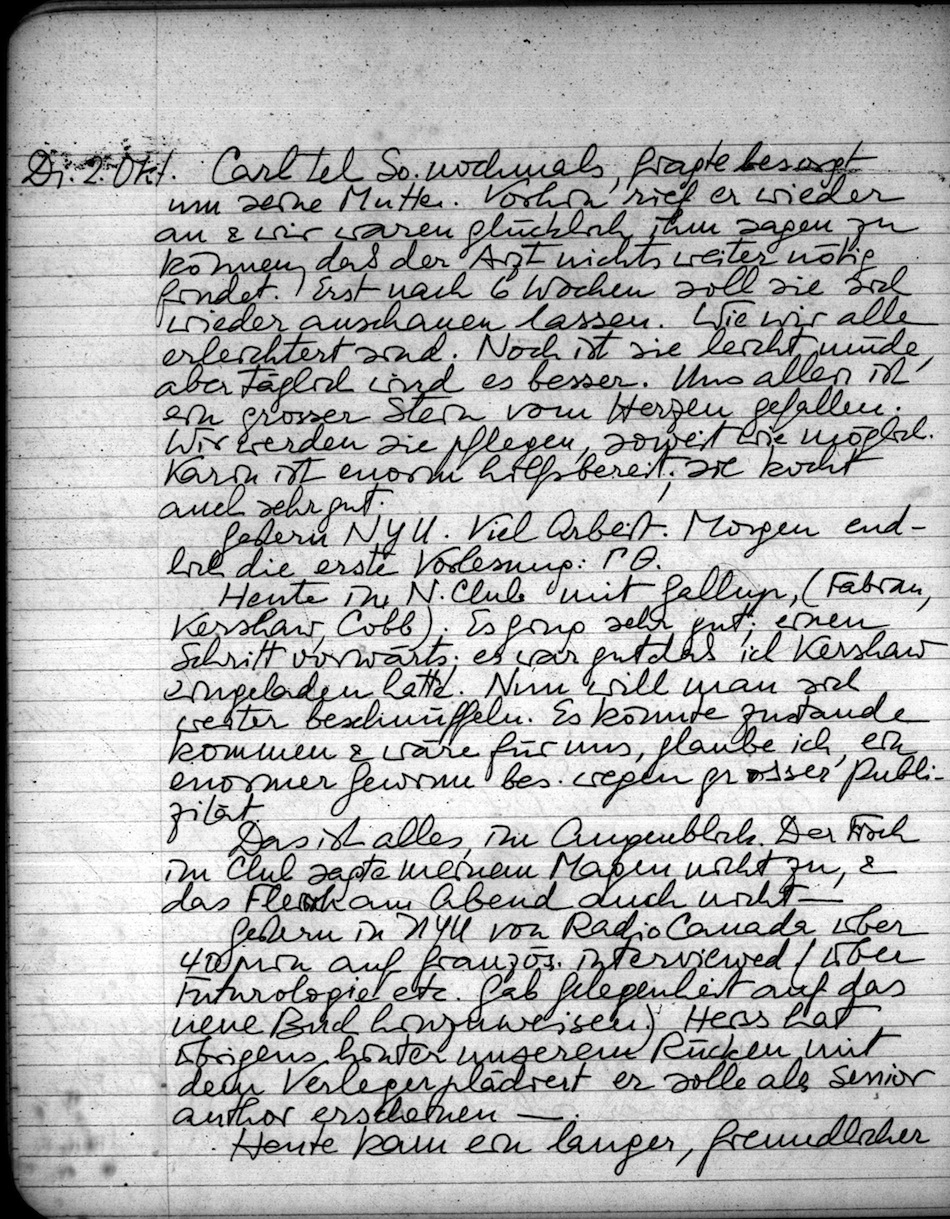 Di. 2. Okt. Carl tel So. nochmals, fragte besorgt
um seine Mutter. Vorhin rief er wieder
an & wir waren glücklich ihm sagen zu
können, daß der Arzt nichts weiter nötig
findet. Erst nach 6 Wochen soll sie sich
wieder anschauen lassen. Wie wir alle
erleichtert sind. Noch ist sie leicht müde,
aber täglich wird es besser. Uns allen ist
ein grosser Stein vom Herzen gefallen.
Wir werden sie pflegen, soweit wie möglich.
Karin ist enorm hilfsbereit; sie kocht
auch sehr gut.
Gestern NYU. Viel Arbeit. Morgen end-
lich die erste Vorlesung:
Heute im N. Club mit Gallup, (Fabian,
Kershaw, Cobb). Es ging sehr gut; einen
Schritt vorwärts; es war gut daß ich Kershaw
eingeladen hatte. Nun will man sich
weiter beschnüffeln. Es könnte zustande
kommen & wäre für uns, glaube ich, ein
enormer Gewinn bes. wegen grosser Publi-
zität.
Das ist alles, im Augenblick. Der Fisch
im Club sagte meinem Magen nicht zu, &
das Fleisch am Abend auch nicht —
Gestern in NYU von Radio Canada über
40 min auf französ. interviewed (über
Futurologie etc. Gab Gelegenheit auf das
neue Buch hinzuweisen.) Heiss hat
übrigens hinter unserem Rücken mit
dem Verleger plädiert er solle als Senior
author erscheinen —.
Heute kam ein langer, freundlicher